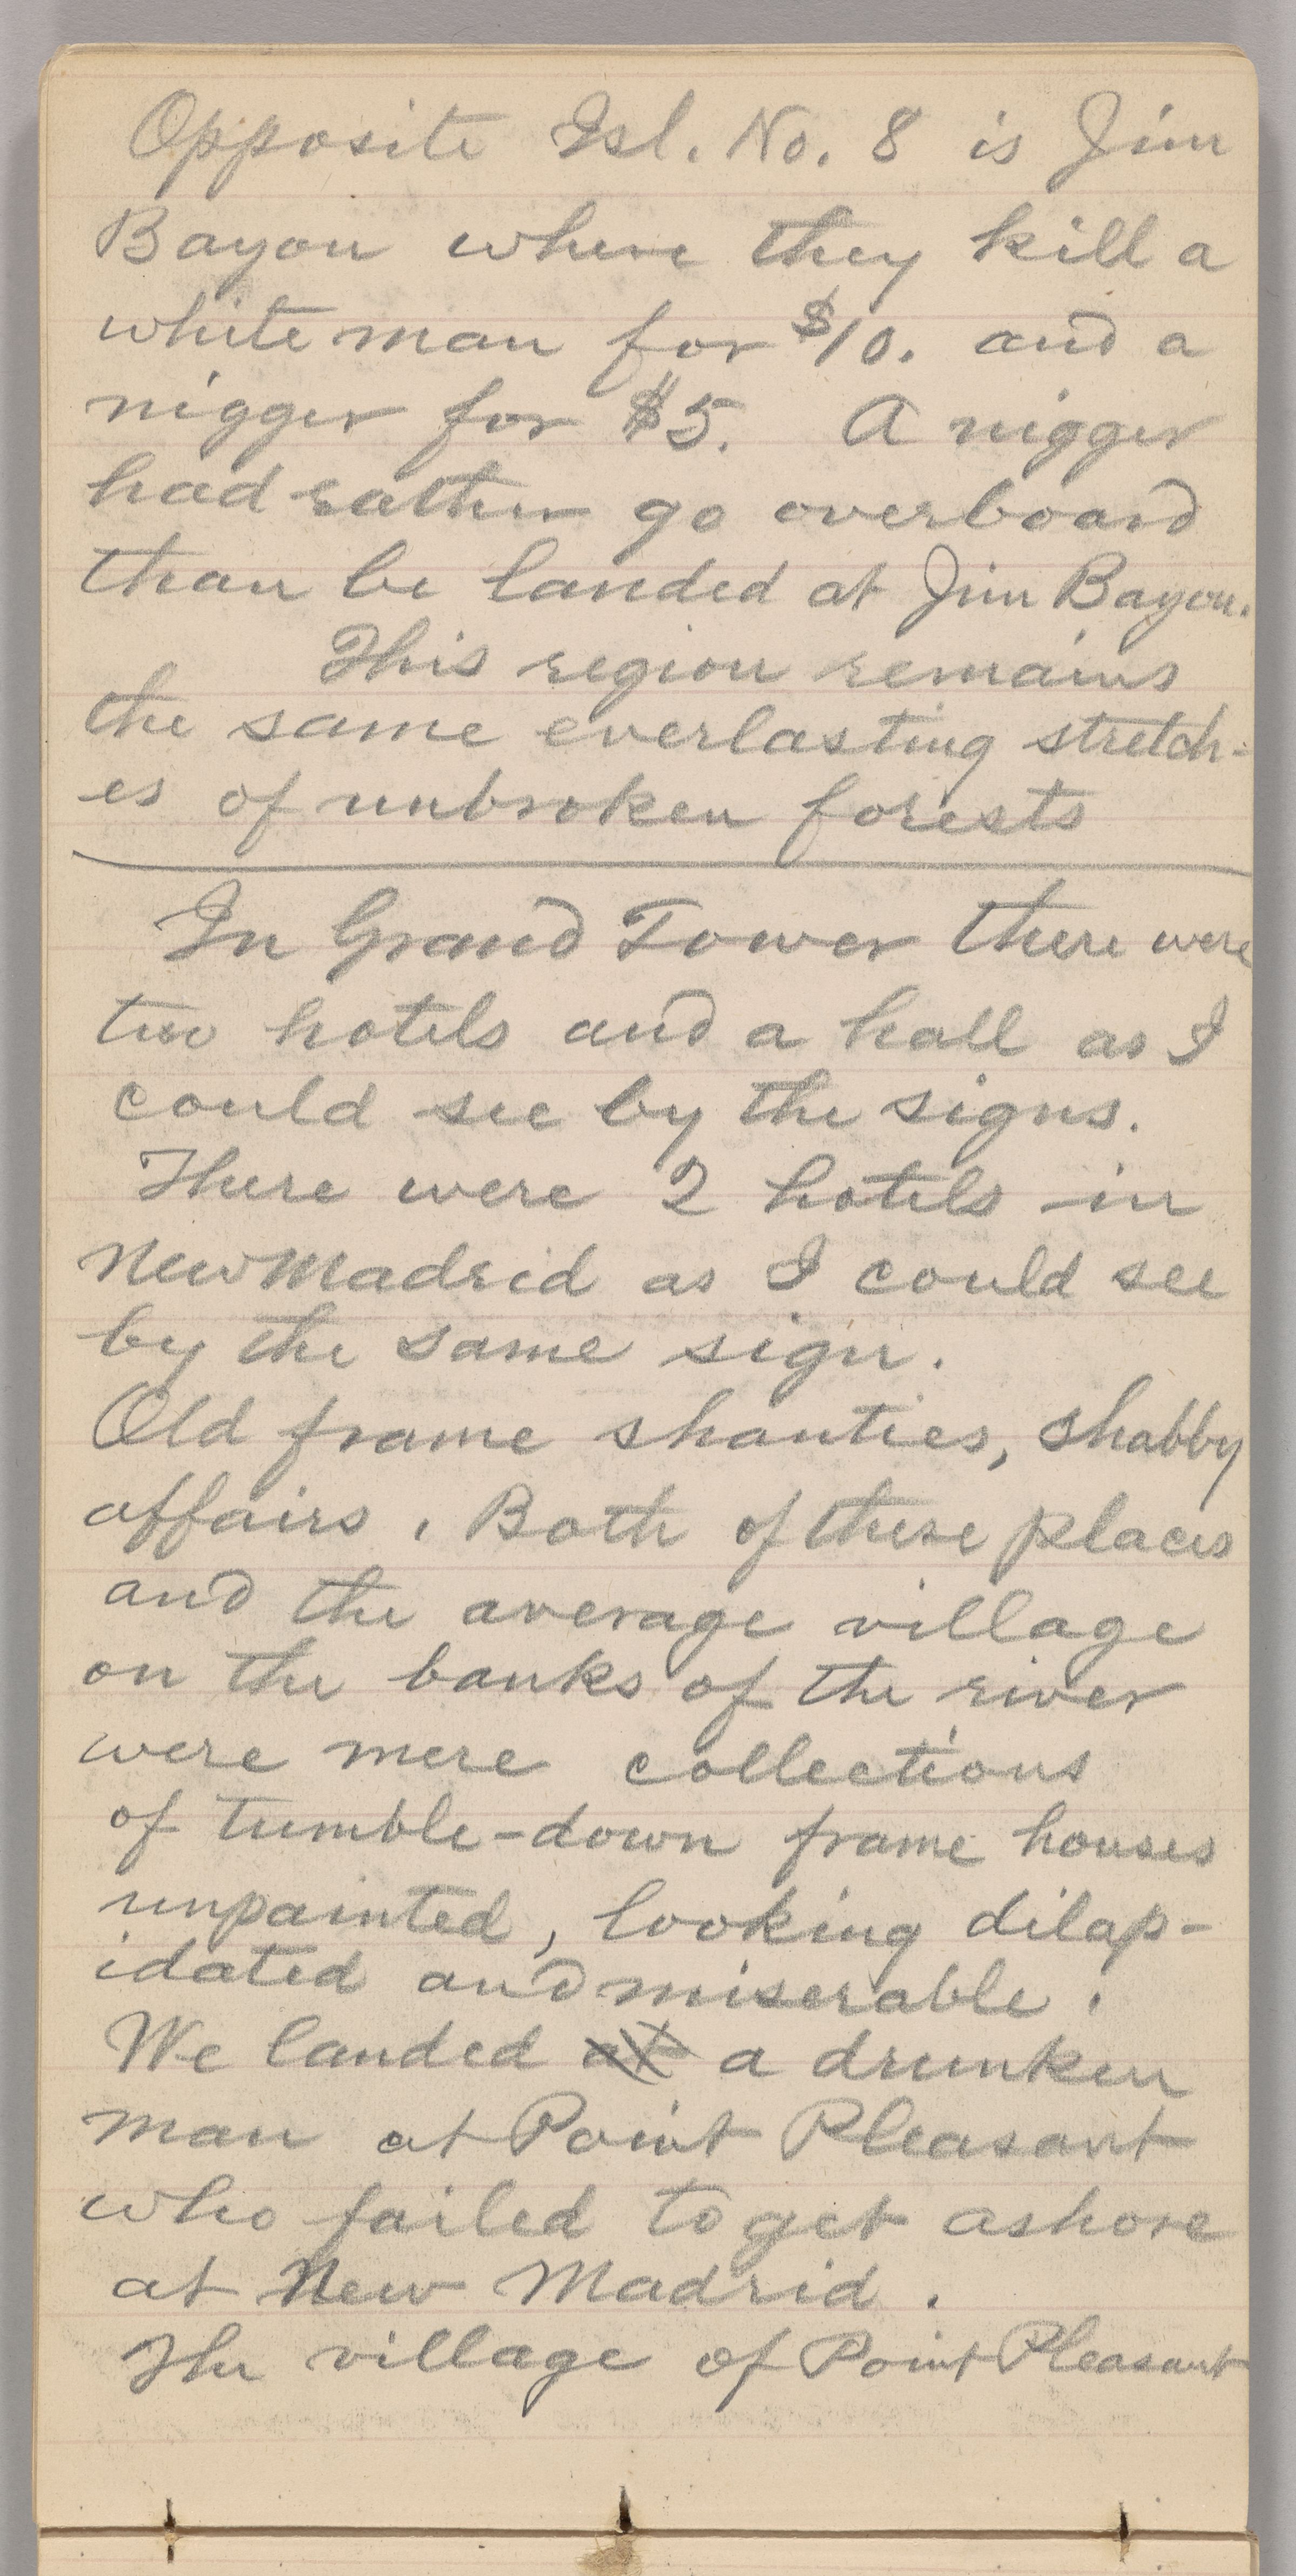 Opposite Isl. No. 8 is Jim
Bayou where they kill a
white man for $10. and a
nigger for $5. A nigger
had rather go overboard
than be landed at Jim Bayou.
This region remains
the same everlasting stretch-
es of unbroken forests
In Grand Tower there were
two hotels and a hall as I
could see by the signs.
There were 2 hotels in
New Madrid as I could see
by the same sign.
Old frame shanties, shabby
affairs. Both of these places
and the average village
on the banks of the river
were mere collections
of tumble-down frame houses
unpainted, looking dilap-
idated and miserable.
We landed at a drunken
man at Point Pleasant
who failed to get ashore
at New Madrid.
The village of Point Pleasant